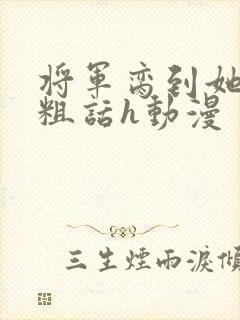 将軍蛮到她
粗話h動漫
三生煙雨淚傾